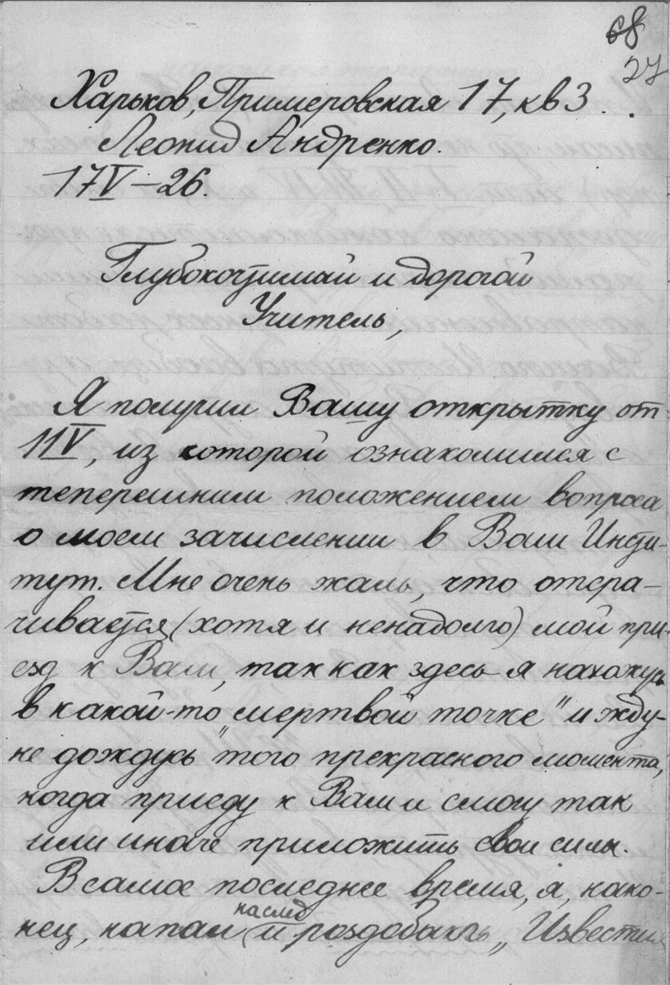 68
27
Харьков, Примеровская 17, кв 3.
Леонид Андренко.
17 V – 26.
Глубокочтимай и дорогой
Учитель,
Я получил Вашу открытку от
11 V, из которой ознакомился с
теперешним положением вопроса
о моем зачислении в Ваш Инсти-
тут. Мне очень жаль, что отсра-
чивается (хотя и ненадолго) мой при-
езд к Вам, так как здесь я нахожусь
в какой-то мертвой точке" и жду-
не дождусь "того прекрасного момента,
когда приеду к Вам и смогу так
или иначе приложить свои силы.
В самое последнее время, я, нако-
нец, напал на след и „Известия